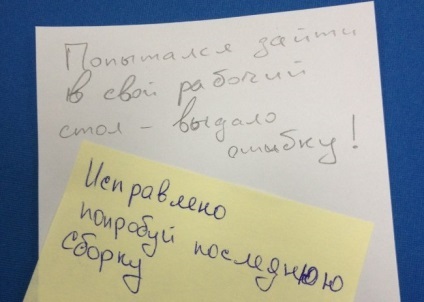 Попытался зайти
в свой рабочий
стол - выдало
ошибку!
Исправлено
попробуй последнюю
сборку